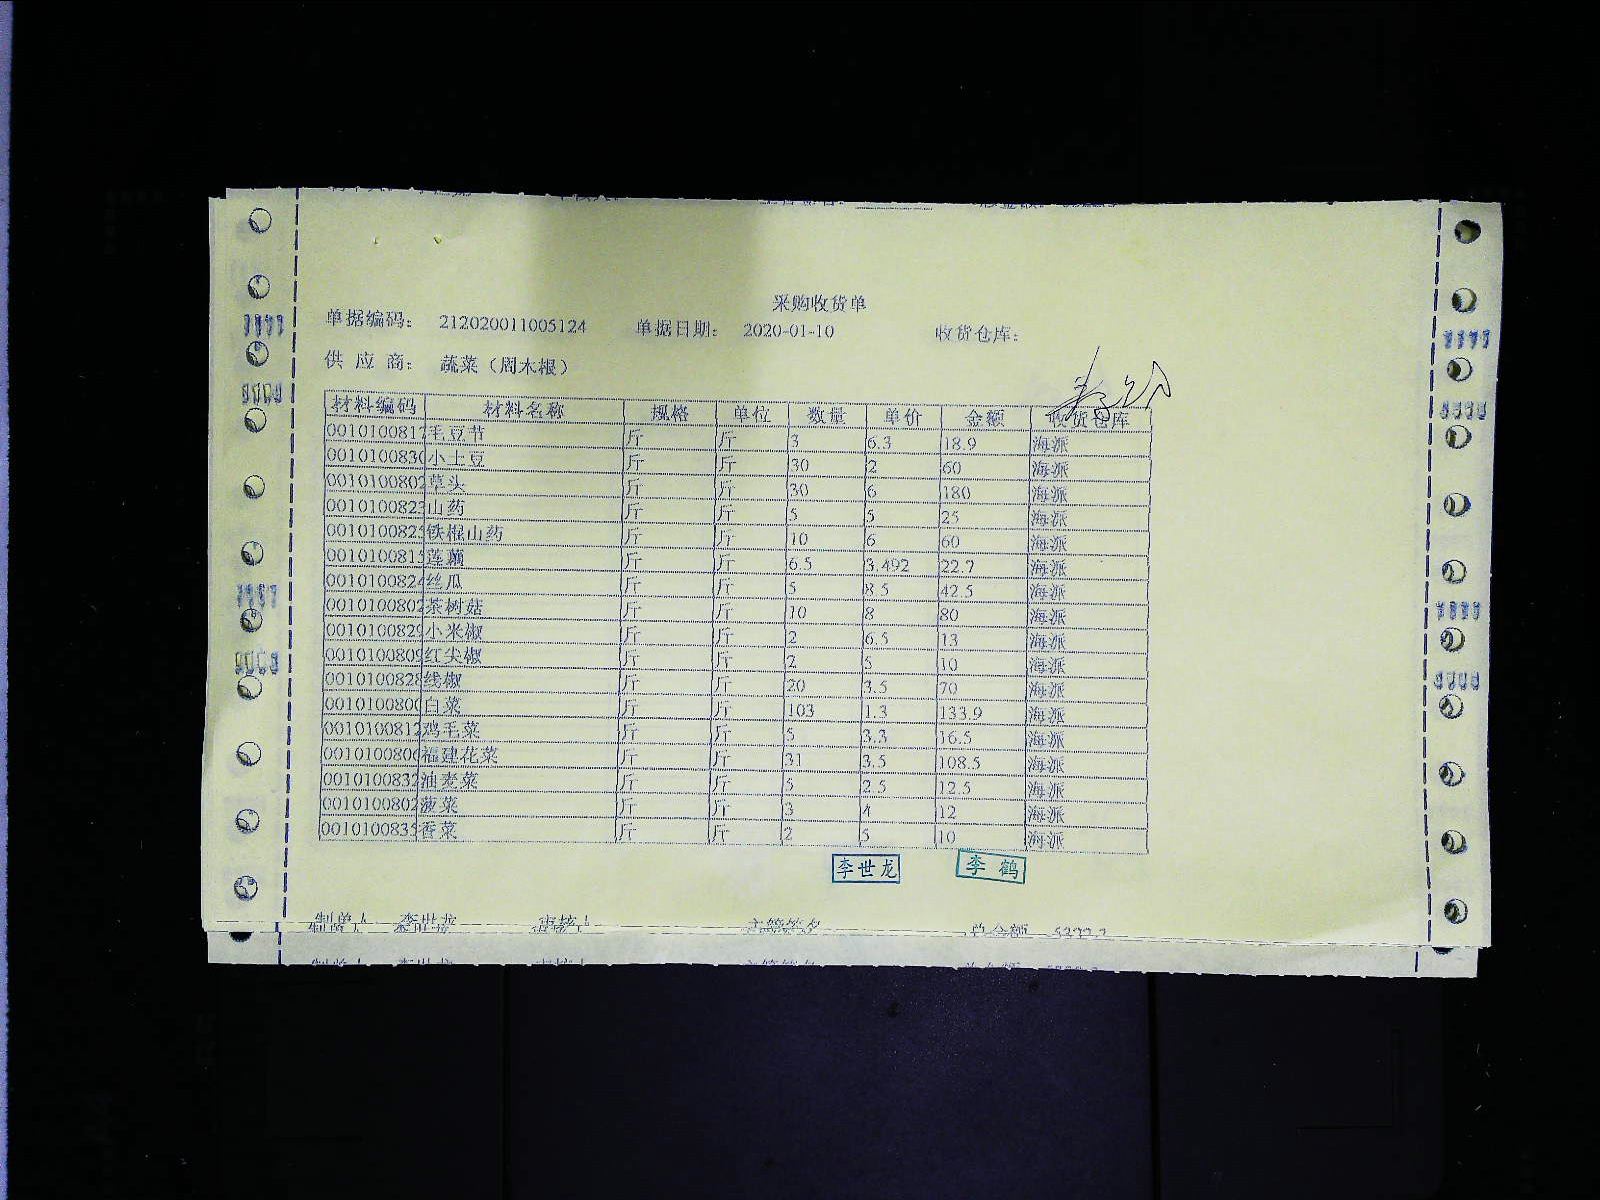 采购收货单
单据编码: 212020011005124 单据日期: 2020-01-10 收货仓库:
供 应 商: 蔬菜（周木根）
材料编码 材料名称 规格 单位 数量 单价 金额 收货仓库
0010100817 毛豆节 斤 斤 3 6.3 18.9 海派
001010083 小土豆 斤 斤 30 2 60 海派
001010080 草头 斤 斤 30 6 180 海派
001010082 山药 斤 斤 5 5 25 海派
001010082 铁棍山药 斤 斤 10 6 60 海派
001010081 莲藕 斤 斤 6.5 3.492 22.7 海派
001010082 丝瓜 斤 斤 5 8.5 42.5 海派
001010080 茶树菇 斤 斤 10 8 80 海派
001010082 小米椒 斤 斤 2 6.5 13 海派
001010080 红尖椒 斤 斤 2 5 10 海派
001010082 线椒 斤 斤 20 3.5 70 海派
001010080 白菜 斤 斤 103 1.3 133.9 海派
001010081 鸡毛菜 斤 斤 5 3.3 16.5 海派
001010080 福建花菜 斤 斤 31 3.5 108.5 海派
001010083 油麦菜 斤 斤 5 2.5 12.5 海派
001010080 菠菜 斤 斤 3 4 12 海派
001010083 香菜 斤 斤 2 5 10 海派
李世龙 李 鹤
制单人 李世龙 审核人 主管签名 总金额